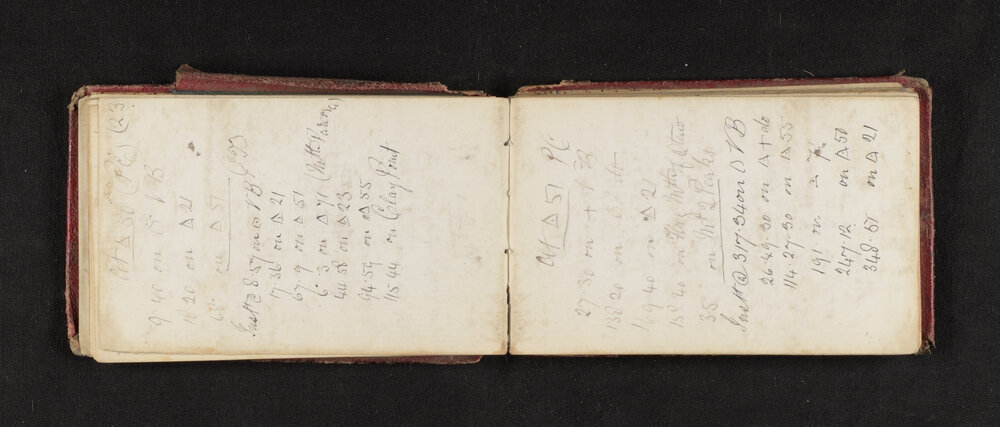 At △ 50 (PC) (23
9 40 on ○ V B
18 20 on △ 21
68 on △ 51
Inst @ 8·57 on ○ VB
17·36 on △ 21
67·9 on △ 51
6·3 on △ 71
44·58 on △ 23
94·59 on △ 55
115 44 on Clay Point
At △ 51 PC
27·30 on + V B
138 20 on do
169·40 on △ 21
138 40 on Flag
35 on Mt 2 Peaks
Inst @ 317·34 on ○ V B
26·49·30 on △ + do
114·27·30 on △ 55
191 on △
247·12 on △ 50
348·51 on △ 21